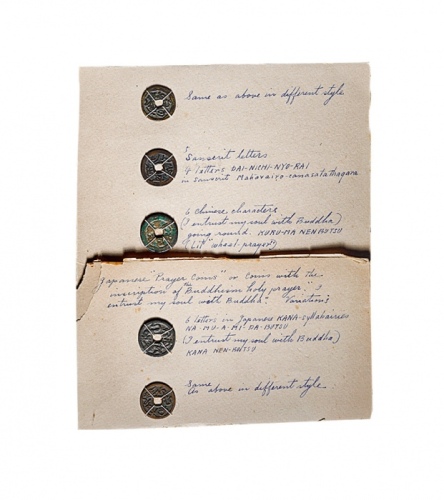 Same as above in different style.
5 Sanscrit letters
4 letters DAI-NICHI-NYO-RAI
in Sanscrit
6 Chinese characters
(I entrust my soul with Buddha)
going round. KURU-MA NEN BUTSU
(Lit "wheel prayer")
Japanese "Prayer Coins" or Coins with the
inscription of the Buddhism holy prayer: "I
entrust my soul with Buddha." Variations
6 letters in Japanese KANA-syllabaries
NA-MU-A-MI-DA-BUTSU
(I entrust my soul with Buddha)
KANA NEN-BUTSU
Same
as above in different style